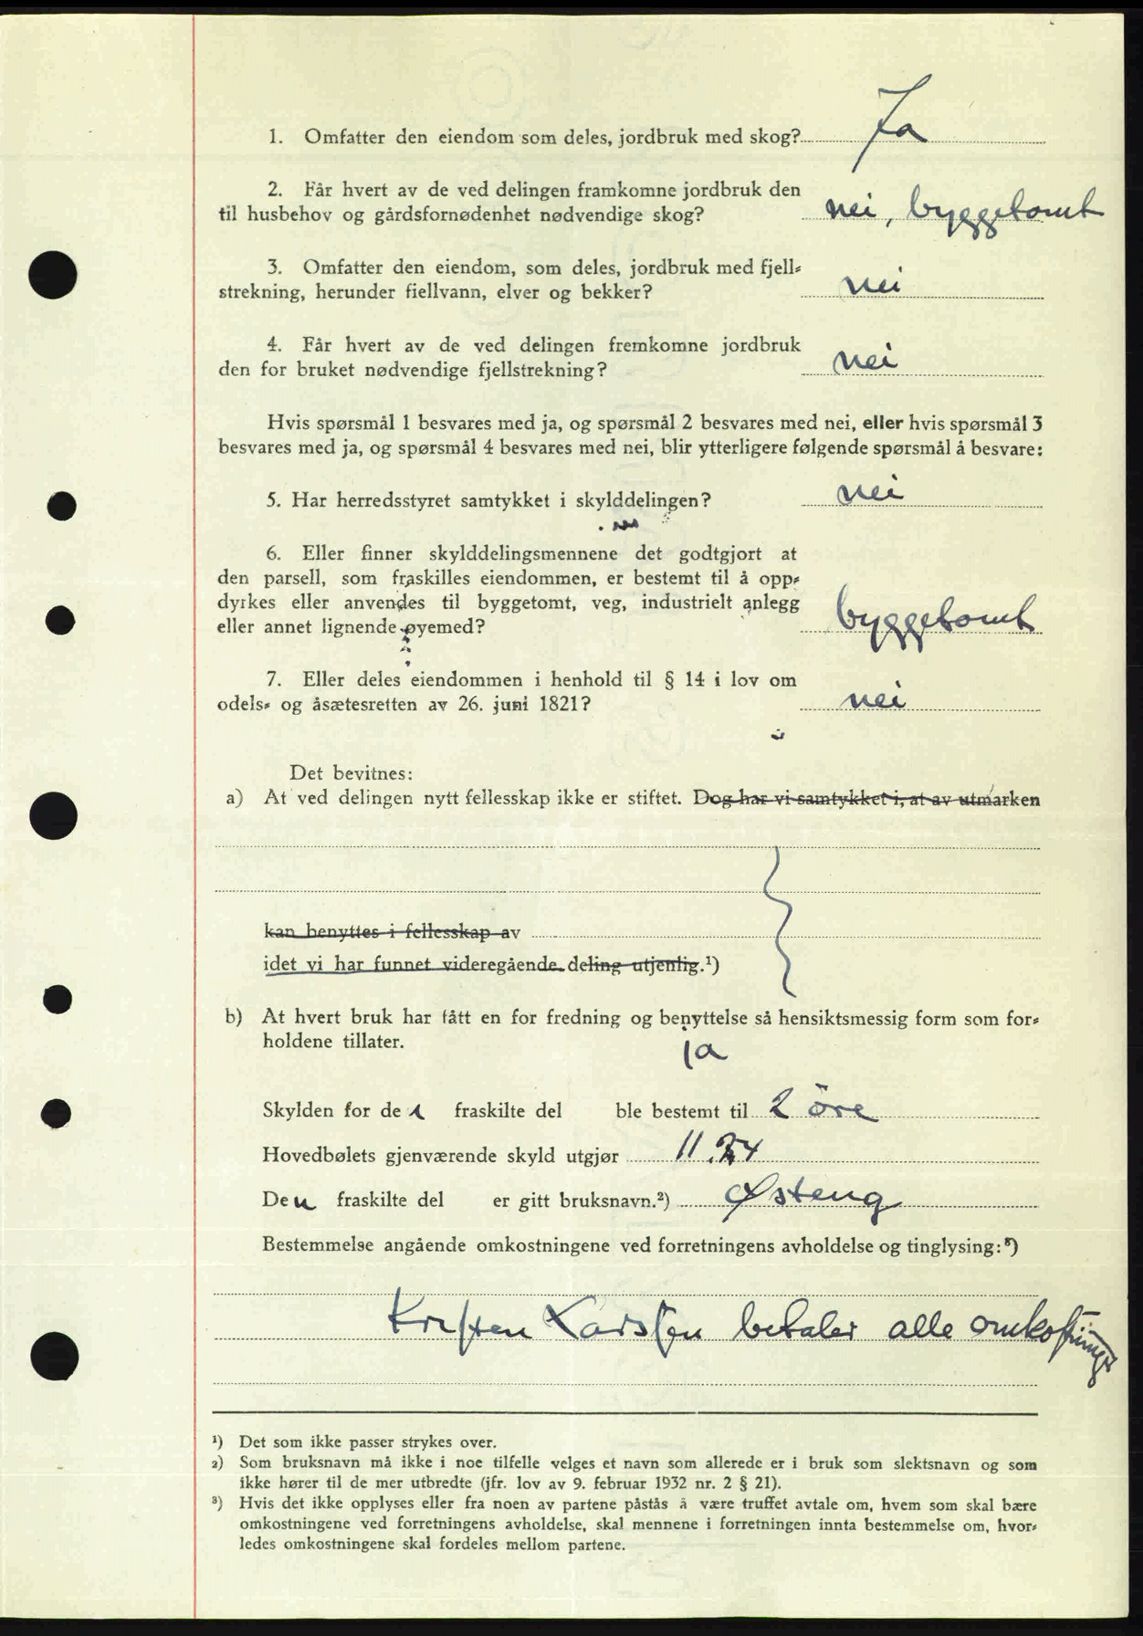 1. Omfatter den eiendom som deles, jordbruk med skog? Ja
2. Får hvert av de ved delingen framkomne jordbruk den
til husbehov og gårdsfornødenhet nødvendige skog? nei, byggetomt
3. Omfatter den eiendom, som deles, jordbruk med fjell-
strekning, herunder fiellvann, elver og bekker? nei
4. Får hvert av de ved delingen fremkomne jordbruk
den for bruket nødvendige fjellstrekning? nei
Hvis spørsmål 1 besvares med ja, og spørsmål 2 besvares med nei, eller hvis spørsmål 3
besvares med ja, og spørsmål 4 besvares med nei, blir ytterligere følgende spørsmål å besvare:
5. Har herredsstyret samtykket i skylddelingen? nei
6. Eller finner skylddelingsmennene det godtgjort at
den parsell, som fraskilles eiendommen, er bestemt til å opp-
dyrkes eller anvendes til byggetomt, veg, industrielt anlegg
eller annet lignende øyemed? byggetomt
7. Eller deles eiendommen i henhold til § 14 i lov om
odels- og åsætesretten av 26. juni 1821? nei
Det bevitnes:
a) At ved delingen nytt fellesskap ikke er stiftet. Dog har vi samtykket i, at av utmarken
kan benyttes i fellesskap av
idet vi har funnet videregående deling utjenlig.¹)
b) At hvert bruk har fått en for fredning og benyttelse så hensiktsmessig form som for-
holdene tillater.
ja
Skylden for de n fraskilte del ble bestemt til 2 öre
Hovedbølets gjenværende skyld utgjør 11.
Den fraskilte del er gitt bruksnavn.²) Østeng
Bestemmelse angående omkostningene ved forretningens avholdelse og tinglysing:³)
Kristen Larssen betaler alle omkostninger
¹) Det som ikke passer strykes over.
²) Som bruksnavn må ikke i noe tilfelle velges et navn som allerede er i bruk som slektsnavn og som
ikke hører til de mer utbredte (jfr. lov av 9. februar 1932 nr. 2 § 21).
³) Hvis det ikke opplyses eller fra noen av partene påstås å være truffet avtale om, hvem som skal bære
omkostningene ved forretningens avholdelse, skal mennene i forretningen innta bestemmelse om, hvor-
ledes omkostningene skal fordeles mellom partene.